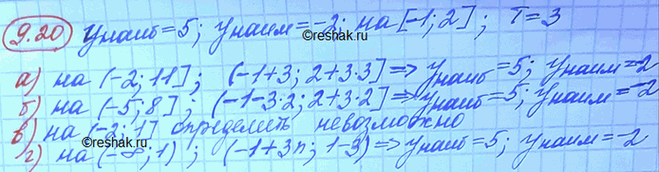 9.20 Yнаиб=5; Yнаим=-2; на [-1;2]; T=3
©reshak.ru
а) на (-2;11]; (-1+3; 2+3·3] => Yнаиб=5; Yнаим=-2
б) на (-5;8]; (-1-3·2; 2+3·2] => Yнаиб=5; Yнаим=-2
©reshak.ru
в) на (-2;1] определить невозможно
г) на (-∞;1); (-1+3n; 1-3) => Yнаиб=5; Yнаим=-2